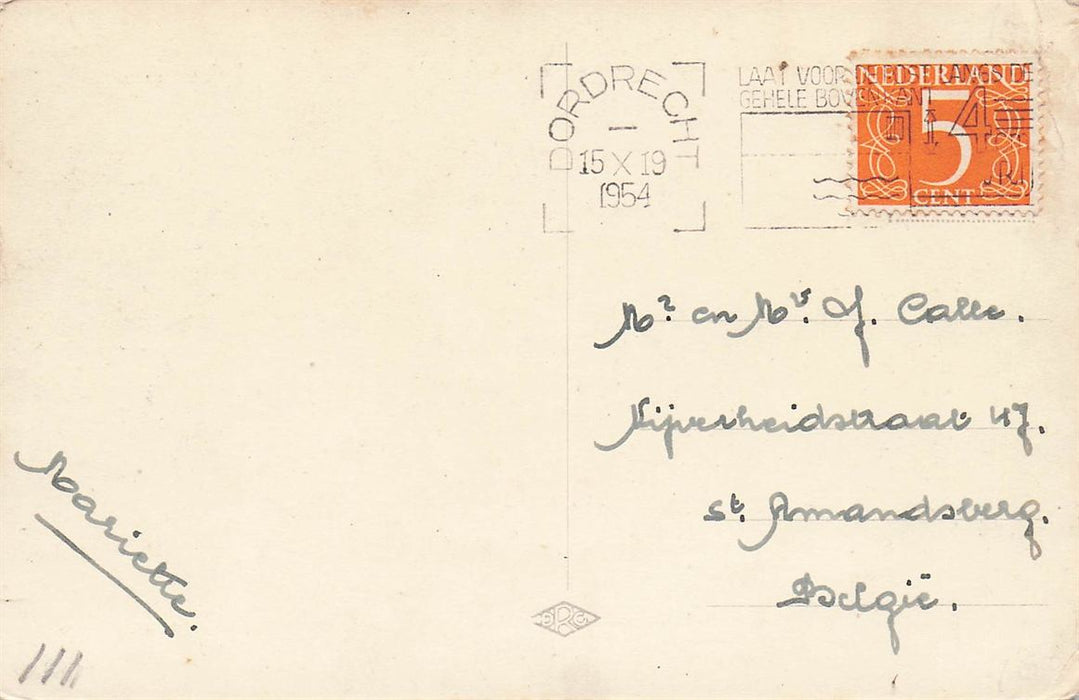 DORDRECHT
15 X 19
1954
LAAT VOOR
GEHELE BOVENKANT
NEDERLAND
5
CENT
Mr. en Mvr. J. Calle.
Nijverheidstraat 47.
St. Amandsberg.
België.
Mariette.